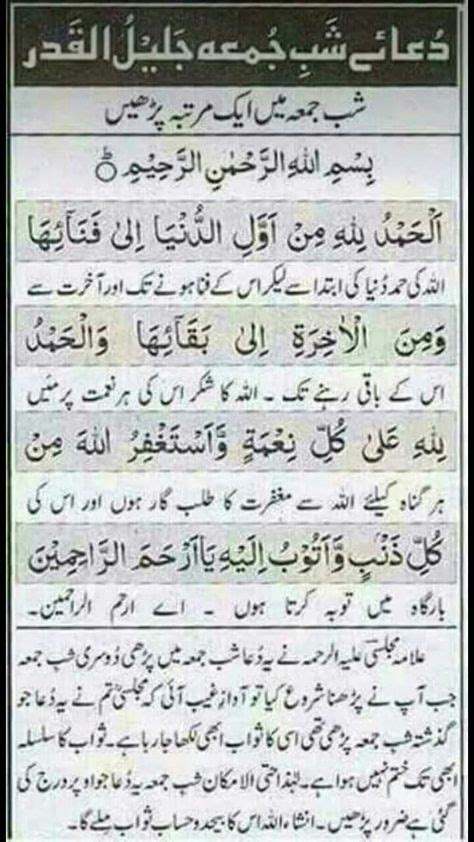 دُعائے شَبِ جُمعہ جَلِیْلُ القَدر
شب جمعہ میں ایک مرتبہ پڑھیں
بِسْمِ اللهِ الرَّحْمٰنِ الرَّحِيْمِ
اَلْحَمْدُ لِلّٰهِ مِنْ اَوَّلِ الدُّنْيَا اِلىٰ فَنَآئِهَا
اللہ کی حمد دُنیا کی ابتدا سے لیکر اس کے فنا ہونے تک اور آخرت سے
وَمِنَ الْاٰخِرَةِ اِلىٰ بَقَآئِهَا وَالْحَمْدُ
اس کے باقی رہنے تک ۔ اللہ کا شکر اس کی ہر نعمت پر مَیں
لِلّٰهِ عَلىٰ كُلِّ نِعْمَةٍ وَّاَسْتَغْفِرُ اللهَ مِنْ
ہر گناہ کیلئے اللہ سے مغفرت کا طلب گار ہوں اور اس کی
كُلِّ ذَنْبٍ وَّاَتُوْبُ اِلَيْهِ يَا اَرْحَمَ الرَّاحِمِيْنَ
بارگاہ میں توبہ کرتا ہوں ۔ اے ارحم الراحمین۔
علامہ مجلسیؒ علیہ الرحمہ نے یہ دُعا شب جمعہ میں پڑھی دُوسری شب جمعہ
جب آپ نے پڑھنا شروع کیا تو آوازِ غیب آئی کہ مجلسیؒ تم نے یہ دُعا جو
گذشتہ شب جمعہ پڑھی تھی اسی کا ثواب ابھی لکھا جا رہا ہے۔ ثواب کا سلسلہ
ابھی تک ختم نہیں ہوا ہے۔ لہٰذا حتی الامکان شب جمعہ یہ دُعا جو اوپر درج کی
گئی ہے ضرور پڑھیں۔ انشاء اللہ اس کا بیحد و حساب ثواب ملے گا۔